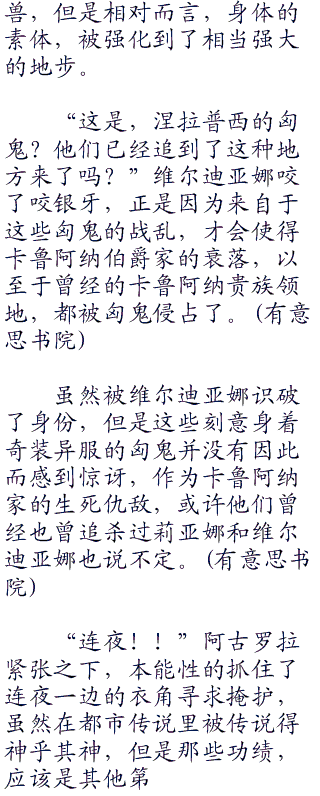 兽，但是相对而言，身体的
素体，被强化到了相当强大
的地步。
“这是，涅拉普西的匈
鬼？他们已经追到了这种地
方来了吗？”维尔迪亚娜咬
了咬银牙，正是因为来自于
这些匈鬼的战乱，才会使得
卡鲁阿纳伯爵家的衰落，以
至于曾经的卡鲁阿纳贵族领
地，都被匈鬼侵占了。(有意
思书院)
虽然被维尔迪亚娜识破
了身份，但是这些刻意身着
奇装异服的匈鬼并没有因此
而感到惊讶，作为卡鲁阿纳
家的生死仇敌，或许他们曾
经也曾追杀过莉亚娜和维尔
迪亚娜也说不定。(有意思书
院)
“连夜！！”阿古罗拉
紧张之下，本能性的抓住了
连夜一边的衣角寻求掩护，
虽然在都市传说里被传说得
神乎其神，但是那些功绩，
应该是其他第